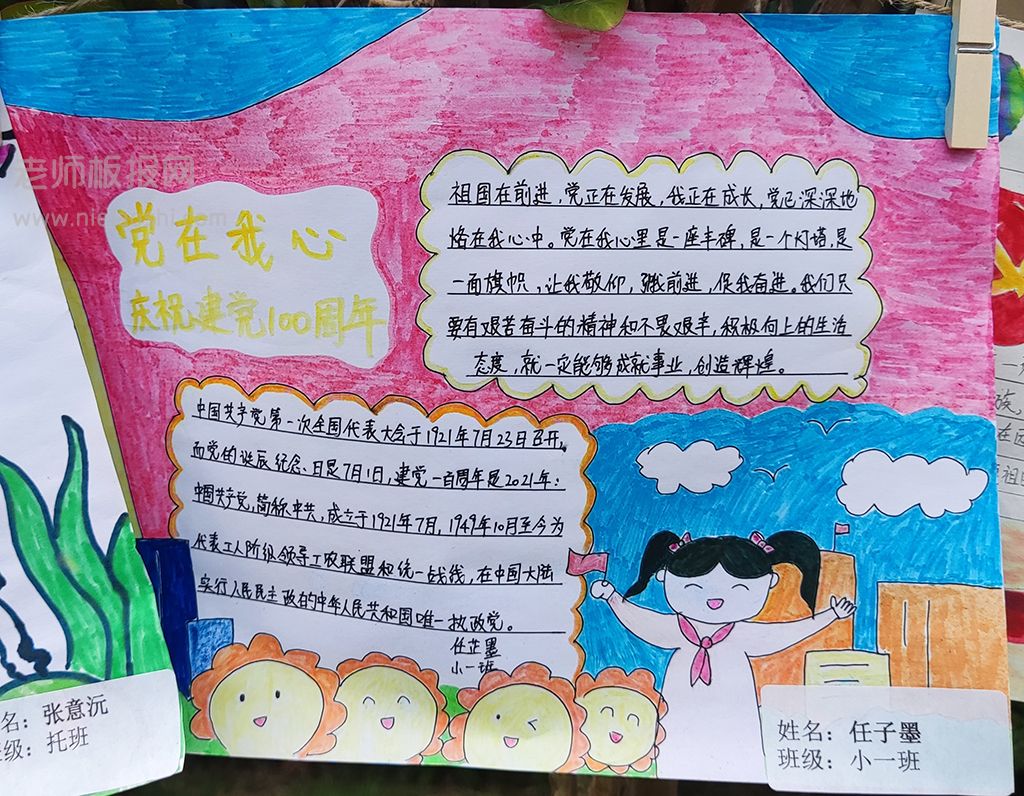 老师板报网
党在我心
庆祝建党100周年
祖国在前进，党正在发展，我正在成长，党已深深地
烙在我心中。党在我心里是一座丰碑，是一个灯塔，是
一面旗帜，让我敬仰，强我前进，促我奋进。我们只
要有艰苦奋斗的精神和不畏艰辛，积极向上的生活
态度，就一定能够成就事业，创造辉煌。
中国共产党第一次全国代表大会于1921年7月23日召开，
而党的诞辰纪念、日是7月1日，建党一百周年是2021年；
中国共产党，简称中共，成立于1921年7月，1949年10月至今为
代表工人阶级领导工农联盟和统一战线，在中国大陆
实行人民民主政的中华人民共和国唯一执政党。
任芷墨
小一班
名：张意沅
级：托班
姓名：任子墨
班级：小一班